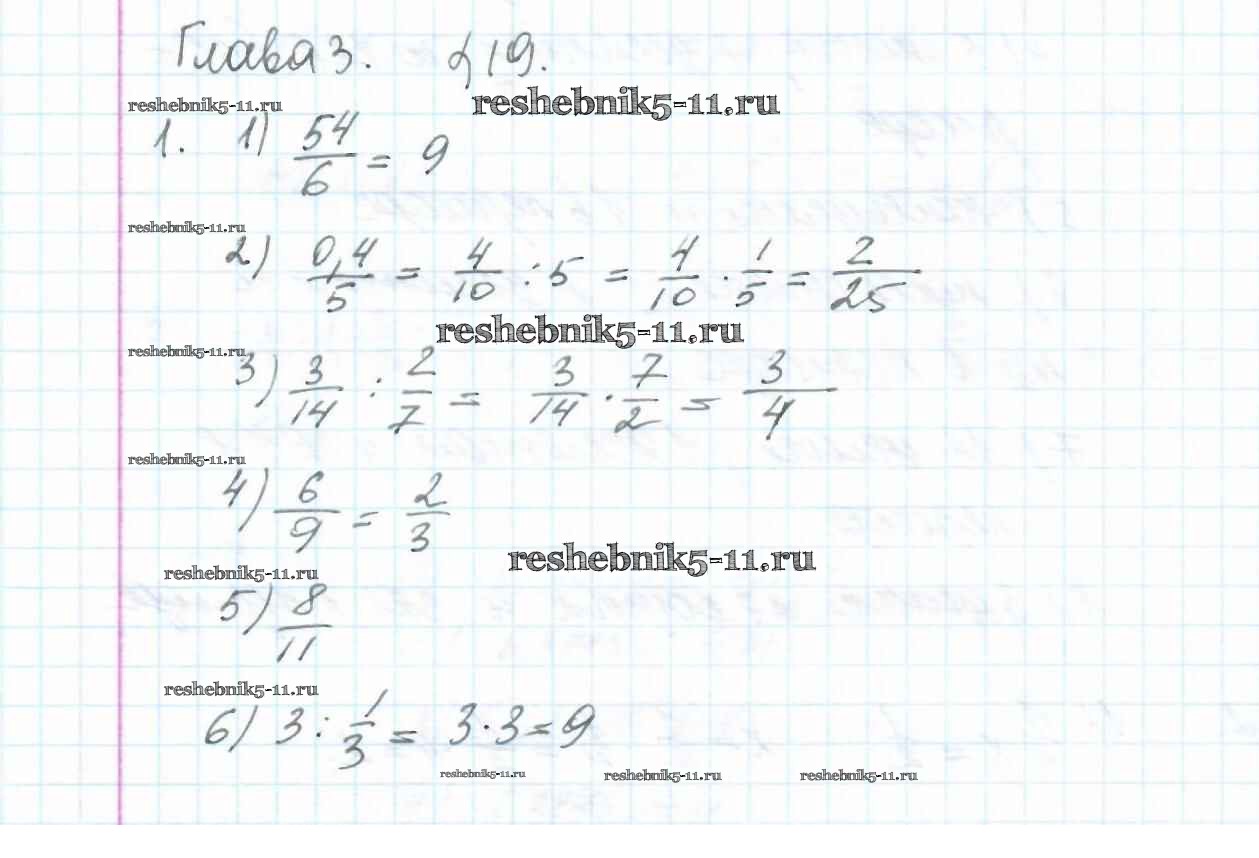 Глава 3. §19.
reshebnik5-11.ru reshebnik5-11.ru
1. 1) 54/6 = 9
reshebnik5-11.ru
2) 0,4/5 = 4/10 : 5 = 4/10 · 1/5 = 2/25
reshebnik5-11.ru
reshebnik5-11.ru
3) 3/14 : 2/7 = 3/14 · 7/2 = 3/4
reshebnik5-11.ru
4) 6/9 = 2/3
reshebnik5-11.ru
reshebnik5-11.ru
5) 8/11
reshebnik5-11.ru
6) 3 : 1/3 = 3·3=9
reshebnik5-11.ru reshebnik5-11.ru reshebnik5-11.ru